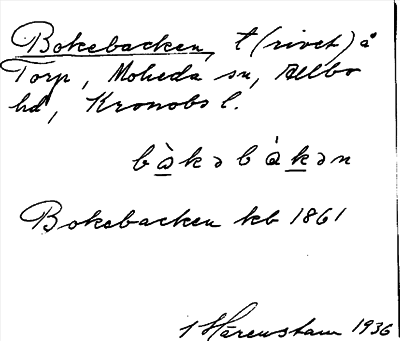 Bokebacken, t(rivet) å
Torp, Moheda sn, Allbo
hd, Kronobs l.
bòkəbàkən
Bokebacken kb 1861
1 Härenstam 1936